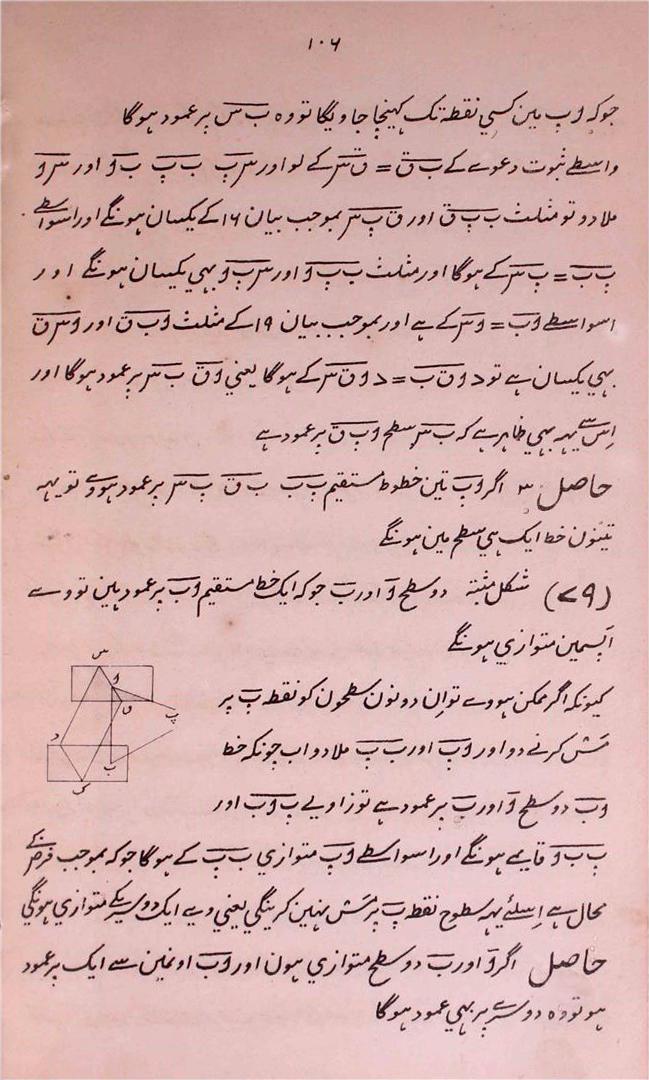 ۱۰۶
جوکہ وپ مین کسي نقطہ تک کہینچا جاویگا تو وہ ب س پر عمود ہوگا
واسطے ثبوت دعوے کے ب ق = ق س کے لو اور س پ ب پ ب و اور س و
ملا دو تو مثلث ب پ ق اور ق پ س بموجب بیان ۱۶ کے یکسان ہونگے اور اسواسطے
پ ب = پ س کے ہوگا اور مثلث ب پ و اور س پ و بہي یکسان ہونگے اور
اسواسطے و ب = و س کے ہے اور بموجب بیان ۱۹ کے مثلث و ب ق اور و س ق
بہي یکسان ہے تو د و ق ب = د و ق س کے ہوگا یعني و ق ب س پر عمود ہوگا اور
اِس سے یہہ بہي ظاہر ہے کہ ب س سطح و پ ق پر عمود ہے
حاصل ۳ اگر و ب تین خطوط مستقیم ب پ ب ق ب س پر عمود ہووے تو یہہ
تینون خط ایک ہي سطح مین ہونگے
(۷۹) شکل مثبتہ دو سطح و اور ب جوکہ ایک خط مستقیم و ب پر عمود ہین تو وے
آپسمین متوازي ہونگے
کیونکہ اگر ممکن ہووے تو اِن دونون سطحون کو نقطہ پ پر
مَسّ کرنے دو اور و پ اور ب پ ملا دو اب جونکہ خط
و ب دو سطح و اور ب پر عمود ہے تو زاویے پ و ب اور
پ ب و قایمے ہونگے اور اسواسطے و پ متوازي ب پ کے ہوگا جوکہ بموجب فرض کے
محال ہے اِسلئے یہہ سطوح نقطہ پ پر مَسّ نہین کرینگي یعني وے ایک دوسریکے متوازي ہونگي
حاصل اگر و اور ب دو سطح متوازي ہون اور و ب اونمین سے ایک پر عمود
ہو تو وہ دوسرے پر بہي عمود ہوگا
س
و
ق
پ
د
ب